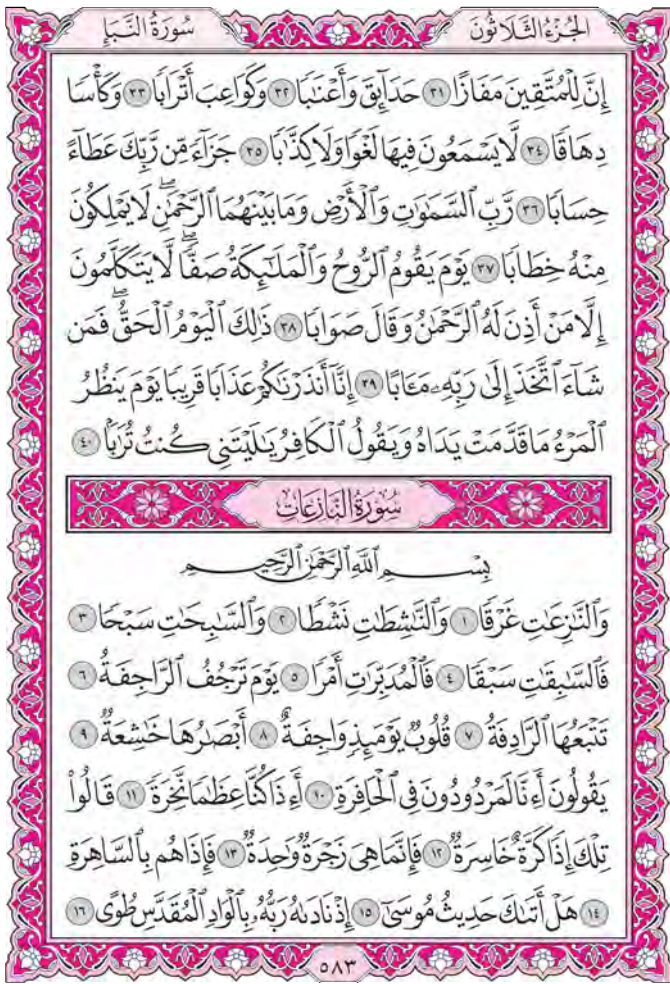 الجُزْءُ الثَّلَاثُونَ سُورَةُ النَّبَإِ
إِنَّ لِلْمُتَّقِينَ مَفَازًا ٣١ حَدَآئِقَ وَأَعْنَٰبًا ٣٢ وَكَوَاعِبَ أَتْرَابًا ٣٣ وَكَأْسًا
دِهَاقًا ٣٤ لَّا يَسْمَعُونَ فِيهَا لَغْوًا وَلَا كِذَّٰبًا ٣٥ جَزَآءً مِّن رَّبِّكَ عَطَآءً
حِسَابًا ٣٦ رَّبِّ السَّمَٰوَٰتِ وَالْأَرْضِ وَمَا بَيْنَهُمَا الرَّحْمَٰنِ ۖ لَا يَمْلِكُونَ
مِنْهُ خِطَابًا ٣٧ يَوْمَ يَقُومُ الرُّوحُ وَالْمَلَٰٓئِكَةُ صَفًّا ۖ لَّا يَتَكَلَّمُونَ
إِلَّا مَنْ أَذِنَ لَهُ الرَّحْمَٰنُ وَقَالَ صَوَابًا ٣٨ ذَٰلِكَ الْيَوْمُ الْحَقُّ ۖ فَمَن
شَآءَ اتَّخَذَ إِلَىٰ رَبِّهِۦ مَـَٔابًا ٣٩ إِنَّآ أَنذَرْنَٰكُمْ عَذَابًا قَرِيبًا يَوْمَ يَنظُرُ
الْمَرْءُ مَا قَدَّمَتْ يَدَاهُ وَيَقُولُ الْكَافِرُ يَٰلَيْتَنِى كُنتُ تُرَٰبًۢا ٤٠
سُورَةُ النَّازِعَات
بِسْمِ اللَّهِ الرَّحْمَٰنِ الرَّحِيمِ
وَالنَّٰزِعَٰتِ غَرْقًا ١ وَالنَّٰشِطَٰتِ نَشْطًا ٢ وَالسَّٰبِحَٰتِ سَبْحًا ٣
فَالسَّٰبِقَٰتِ سَبْقًا ٤ فَالْمُدَبِّرَٰتِ أَمْرًا ٥ يَوْمَ تَرْجُفُ الرَّاجِفَةُ ٦
تَتْبَعُهَا الرَّادِفَةُ ٧ قُلُوبٌ يَوْمَئِذٍ وَاجِفَةٌ ٨ أَبْصَٰرُهَا خَٰشِعَةٌ ٩
يَقُولُونَ أَءِنَّا لَمَرْدُودُونَ فِى الْحَافِرَةِ ١٠ أَءِذَا كُنَّا عِظَٰمًا نَّخِرَةً ١١ قَالُوا۟
تِلْكَ إِذًا كَرَّةٌ خَاسِرَةٌ ١٢ فَإِنَّمَا هِىَ زَجْرَةٌ وَٰحِدَةٌ ١٣ فَإِذَا هُم بِالسَّاهِرَةِ
١٤ هَلْ أَتَىٰكَ حَدِيثُ مُوسَىٰٓ ١٥ إِذْ نَادَىٰهُ رَبُّهُۥ بِالْوَادِ الْمُقَدَّسِ طُوًى ١٦
٥٨٣